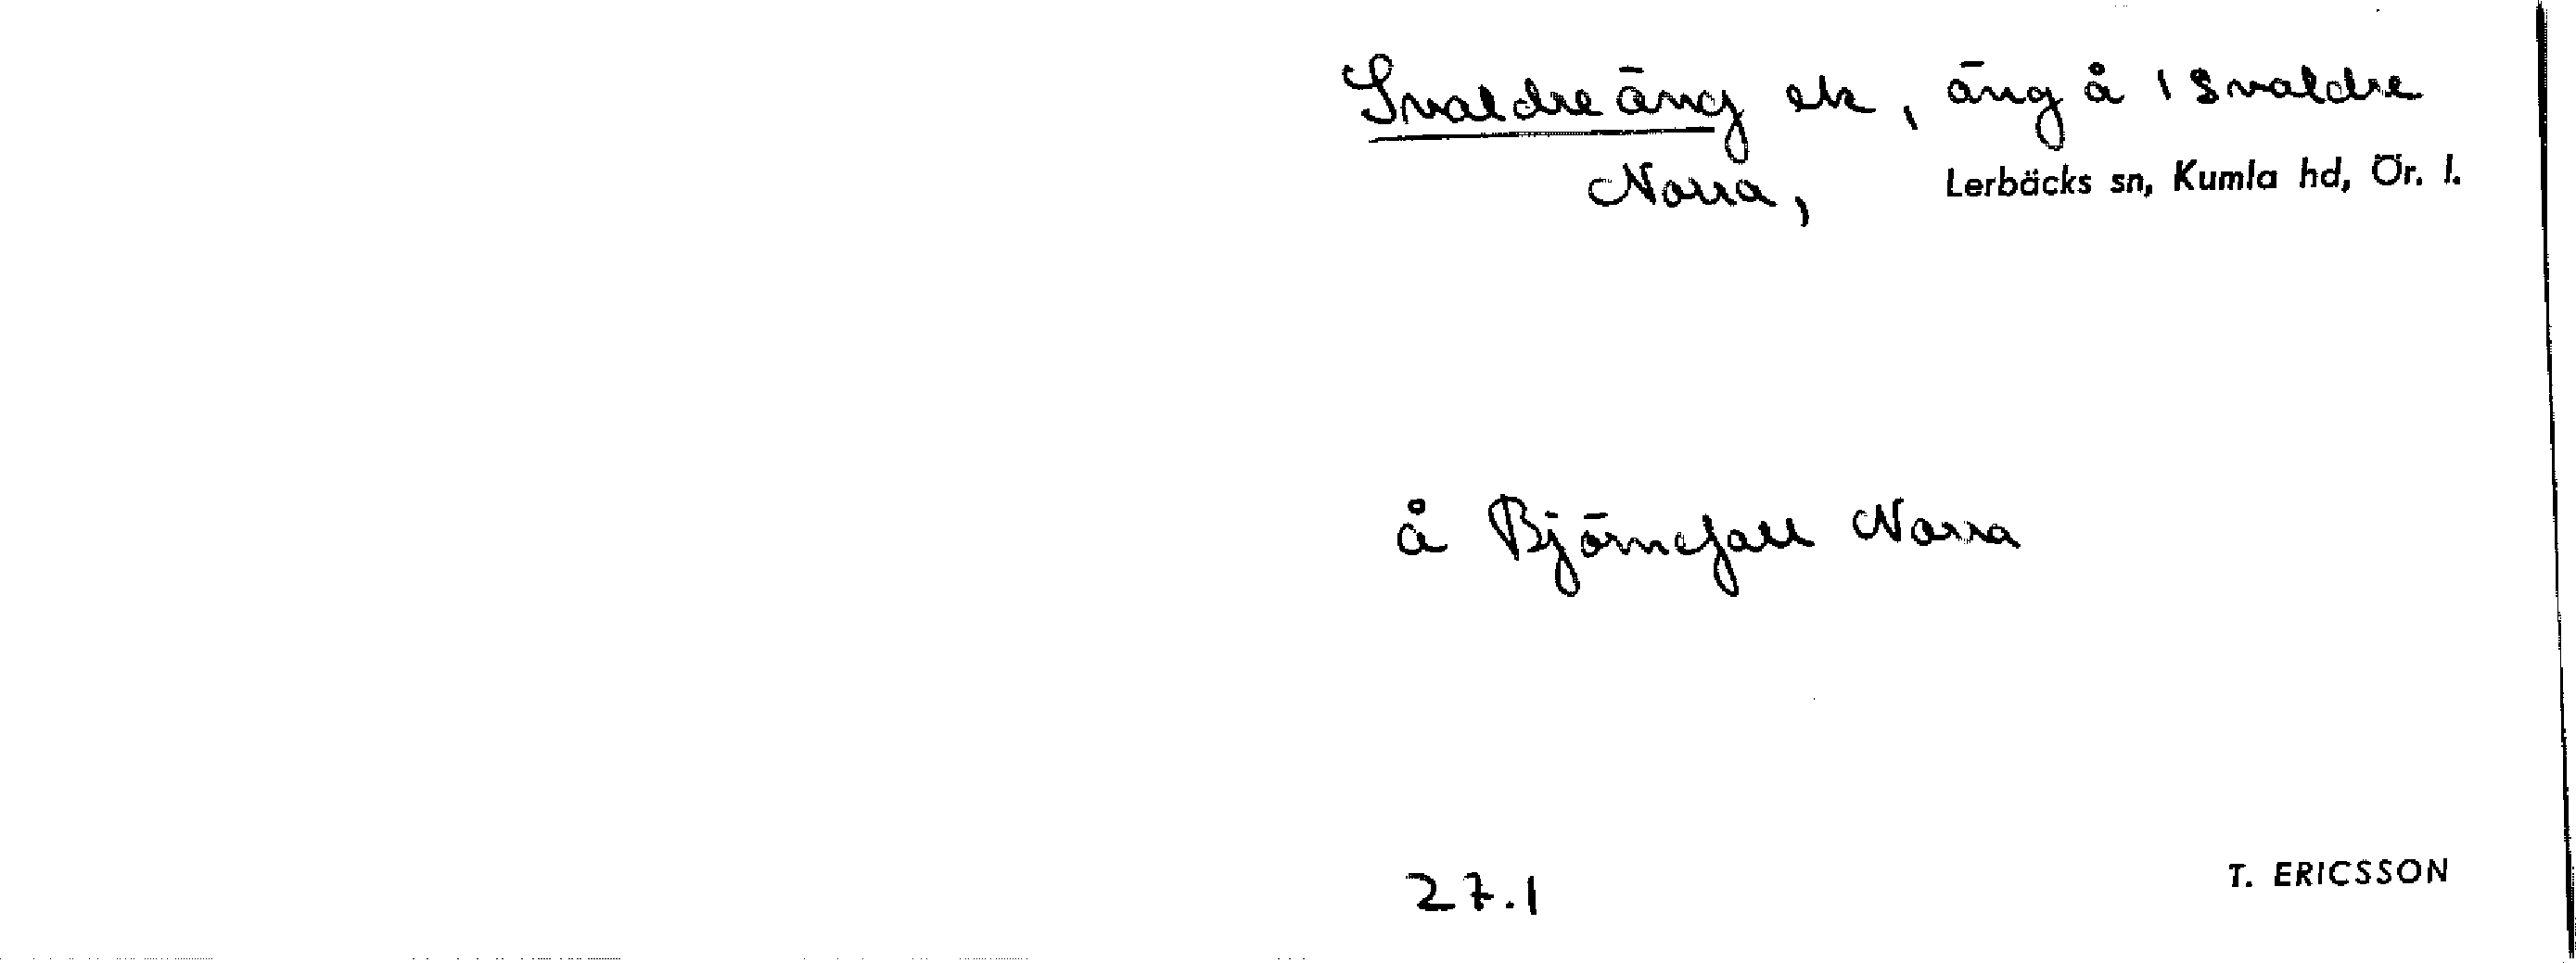 Svaldreäng ek, äng å 1 Svaldre
Norra, Lerbäcks sn, Kumla hd, Ör. l.
å Björnefall Norra
27.1 T. ERICSSON